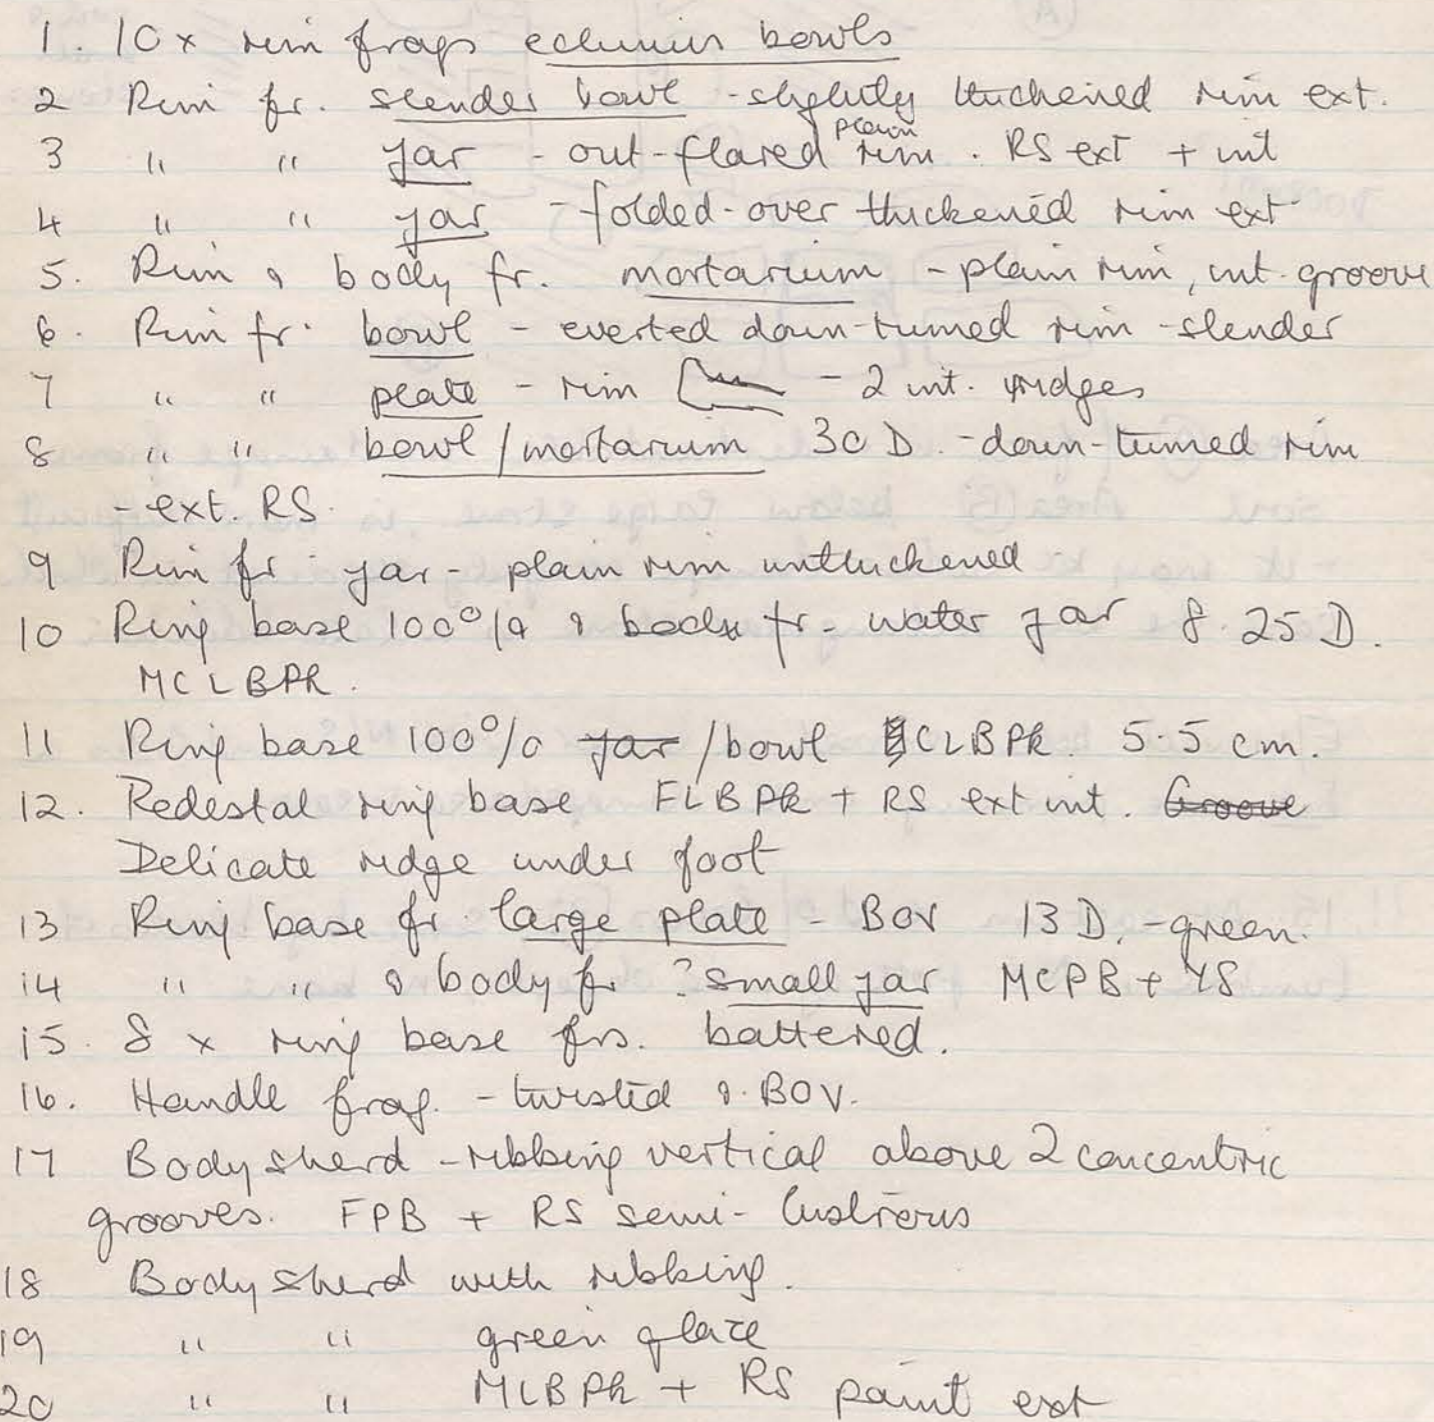 1. 10x rim frags echinus bowls
2 Rim fr. slender bowl - slightly thickened rim ext.
3 " " jar - out-flared plain rim. RS ext + int
4 " " jar - folded-over thickened rim ext.
5. Rim & body fr. mortarium - plain rim, int. groove
6. Rim fr. bowl - everted down-turned rim - slender
7 " " plate - rim - 2 int. ridges
8 " " bowl/mortarium 30 D. - down-turned rim
- ext. RS.
9 Rim fr jar - plain rim unthickened
10 Ring base 100% & body fr. water jar 8.25 D.
MCLBPR.
11 Ring base 100% jar /bowl CLBPR. 5.5 cm.
12. Pedestal ring base FLBPR + RS ext int. Groove
Delicate ridge under foot
13 Ring base fr. large plate - BOV 13 D. - green.
14 " " & body fr ? small jar MCPB + YS
15. 8 x ring base frs. battered.
16. Handle frag. - twisted & BOV.
17 Body sherd - ribbing vertical above 2 concentric
grooves. FPB + RS semi-lustrous
18 Body sherd with ribbing.
19 " " green glaze
20 " " MLBPR + RS paint ext